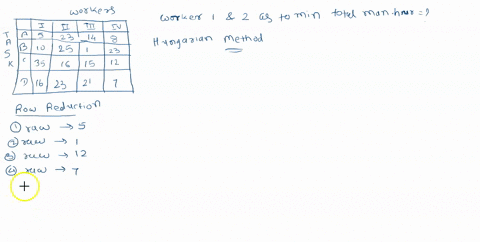 workers
TASK
I II III IV
A 5 23 14 8
B 10 25 1 23
C 35 16 15 12
D 16 23 21 7
worker 1 & 2 as to min total man hour = ?
Hungarian Method
Row Reduction
① row → 5
② row → 1
③ row → 12
④ row → 7